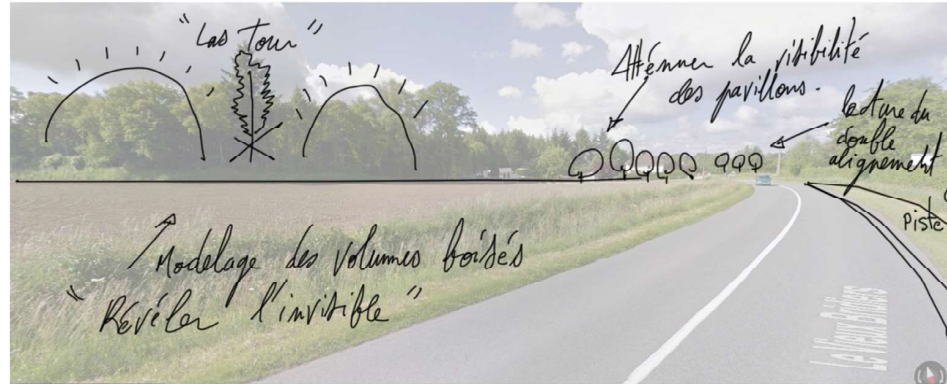 "Las Tour"
Atténuer la visibilité
des pavillons.
lecture du
double
alignement
piste
Modelage des volumes boisés
"Révéler l'invisible"
Le Vieux Briviers